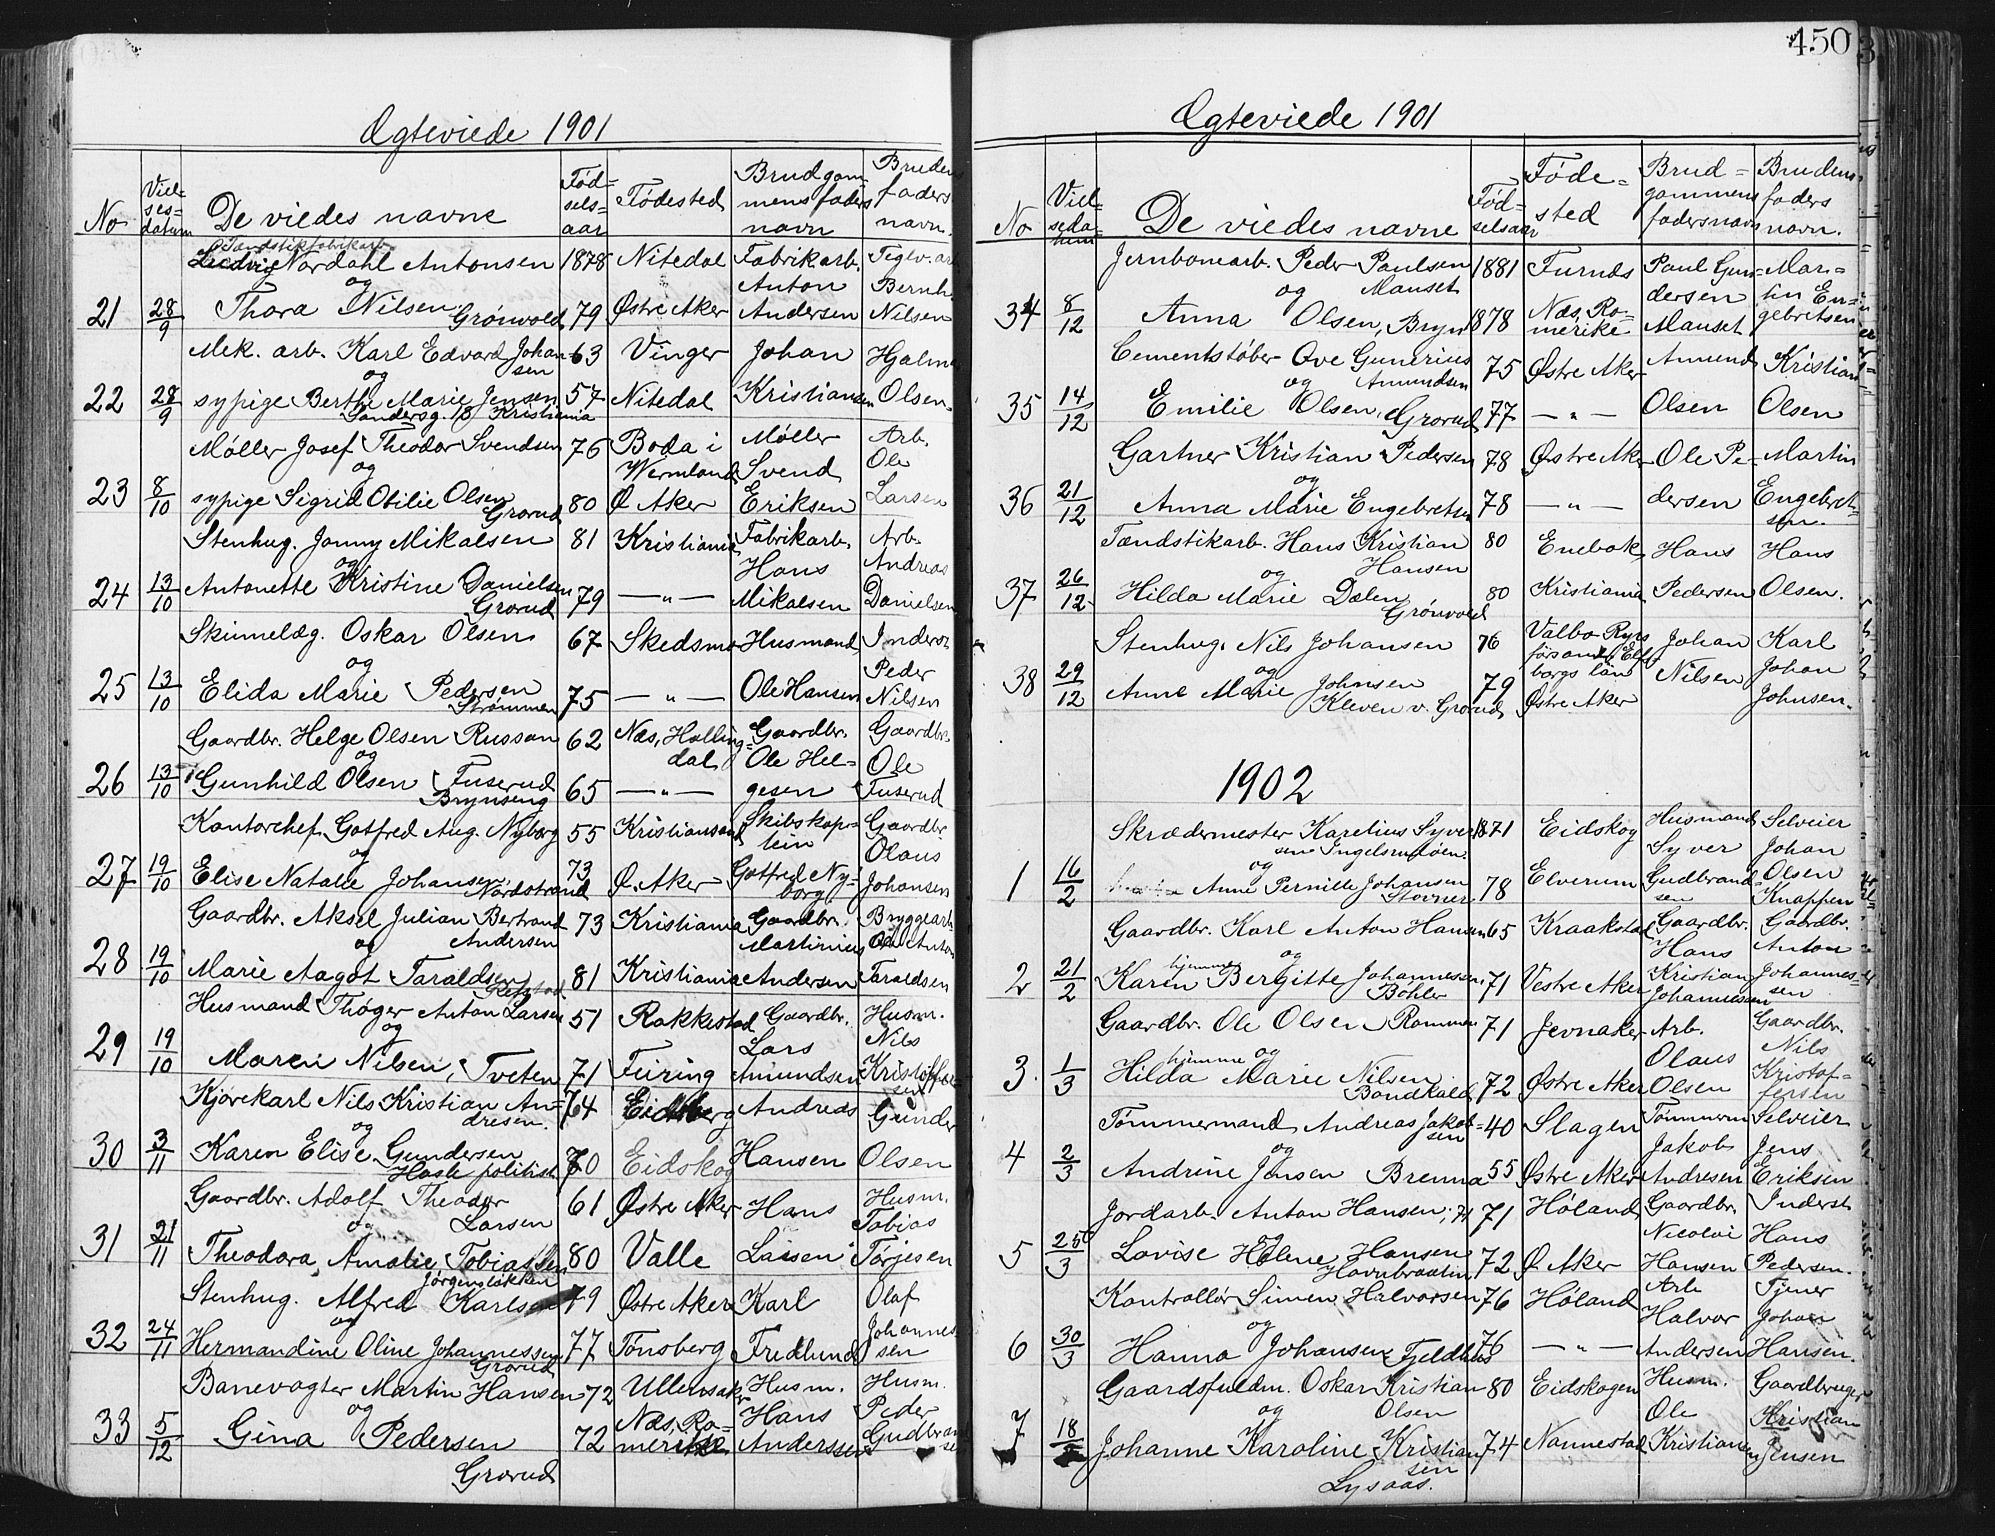 Ægteviede 1901
No
Vielsesdatum
De viedes navne
Fødselsaar
Fødested
Brudgommens faders navn
Brudens faders navn.
Tændstikfabrikarb.
Ludvig Nordahl Antonsen 1878 Nitedal Fabrikarb. Teglv. arb.
og Anton Bernh.
21 28/9 Thora Nilsen Grønvold 79 Østre Aker Andersen Nilsen
Mek. arb. Karl Edvard Johansen 63 Vinger Johan Hjalmar
og
22 28/9 sypige Berthe Marie Jensen 57 Nitedal Kristiansen Olsen
Sandersg. 18 Kristiania
Møller Josef Theodor Svendsen 76 Boda i Wermland Møller Svend Arb. Ole
og
23 8/10 sypige Sigrid Otilie Olsen Grorud 80 Ø Aker Eriksen Larsen
Stenhug. Jonny Mikalsen 81 Kristiania Fabrikarb. Hans Arb. Andreas
og
24 13/10 Antonette Kristine Danielsen Grorud 79 — " — Mikalsen Danielsen
Skinnelæg. Oskar Olsen 67 Skedsmo Husmand Inderst
og Peder
25 13/10 Elida Marie Pedersen Strømmen 75 — " — Ole Hansen Nilsen
Gaardbr. Helge Olsen Russan 62 Næs, Hallingdal Gaardbr. Ole Hel- Gaardbr. Ole
og
26 13/10 Gunhild Olsen Tuserud Brynseng 65 — " — gesen Tuserud
Kontorchef Gotfred Aug. Nyborg 55 Kristiansand Skibskaptein Gaardbr. Olaus
og
27 19/10 Elise Natalie Johansen Nordstrand 73 Ø. Aker Gotfred Nyborg Johansen
Gaardbr. Aksel Julian Bertrand Andersen 73 Kristiania Gaardbr. Martinius Bryggearb. Ole Anton
og
28 19/10 Marie Aagot Taraldsen 81 Kristiania Andersen Taraldsen
Husmand Thøger Anton Larsen 51 Rakkestad Gaardbr. Lars Husm. Nils
og
29 19/10 Maren Nilsen, Tveten 71 Feiring Amundsen Kristoffersen
Kjørekarl Nils Kristian Andresen. 64 Eidsberg Andreas Gunder
og
30 3/11 Karen Elise Gundersen 70 Eidskog Hansen Olsen
Hasle politist.
Gaardbr. Adolf Theodor Larsen 61 Østre Aker Hans Husm. Tobias
og
31 21/11 Theodora, Amalie Tobiassen 80 Valle Larsen Torjesen
Jørgensløkken
Stenhug. Alfred Karlsen 79 Østre Aker Karl Olaf
og
32 24/11 Hermandine Oline Johannessen Grorud 77 Tønsberg Fredlund Johannessen
Banevogter Martin Hansen 72 Ullensaker Husm. Hans Husm. Peder
og
33 5/12 Gina Pedersen 72 Næs, Romerike Anderssen Gudbrandsen
Grorud
450
Ægteviede 1901
No
Vielsedatum
De viedes navne
Fødselsaar
Fødested
Brudgommens fadersnavn
Brudens faders navn.
Jernbanearb. Peder Paulsen Manset 1881 Furnæs Paul Gun- Mar-
og
34 8/12 Anna Olsen, Bryn 1878 Næs, Romerike dersen Manset tin Engebretsen
Cementstøber Ove Gunerius Amundsen 75 Østre Aker Amund Kristian
og
35 14/12 Emilie Olsen, Grorud 77 — " — Olsen Olsen
Gartner Kristian Pedersen 78 Østre Aker Ole Pe- Martin
og
36 21/12 Anna Marie Engebretsen 78 — " — dersen Engebretsen.
Tændstikarb. Hans Kristian Hansen 80 Enebak Hans Hans
og
37 26/12 Hilda Marie Dælen Grønvold 80 Kristiania Pedersen Olsen.
Stenhug. Nils Johansen 76 Valbo Ryrs församl. Elfsborgs län Johan Karl
og
38 29/12 Anne Marie Johnsen 79 Østre Aker Nilsen Johan Johnsen.
Kleven v. Grorud
1902
Skrædermester Karelius Syversen Ingelsrudøen 1871 Eidskog Husmand Syver Selveier Johan
og
1 16/2 Anne Pernille Johansen Stovner 78 Elverum Gudbrandsen Olsen Knappen
Gaardbr. Karl Anton Hansen 65 Kraakstad Gaardbr. Hans Gaardbr. Anton
og
2 21/2 Karen hjemme Bergitte Johannesen Bøhler 71 Vestre Aker Kristian Johannessen Johannessen
Gaardbr. Ole Olsen Rommen 71 Jevnaker Arb. Gaardbr.
hjemme og Olaus Nils
3. 1/3 Hilda Marie Nilsen Bondkald 72 Østre Aker Olsen Kristoffersen
Tømmermand Andreas Jakobsen 40 Slagen Tømmerm Jakob Selveier Jens
og
4 2/3 Andrine Jensen Brenna 55 Østre Aker Andresen Eriksen
Jordarb. Anton Hansen, 71 71 Høland Gaardbr. Nicolai Inderst Hans
og
5 25/3 Lovise Helene Hansen Havnbraaten 72 Ø Aker Hansen Pedersen.
Kontrollør Simen Halvorsen 76 Høland Arb Halvor Tjener Johan
og
6 30/3 Hanna Johansen Fjeldhus 76 — " — Andersen Hansen.
Gaardsfuldm. Oskar Kristian Olsen 80 Eidskogen Husm. Ole Gaardbruger Kristian
og
7 18 Johanne Karoline Kristiansen 74 Nannestad Kristiansen Jensen
Lysaas.